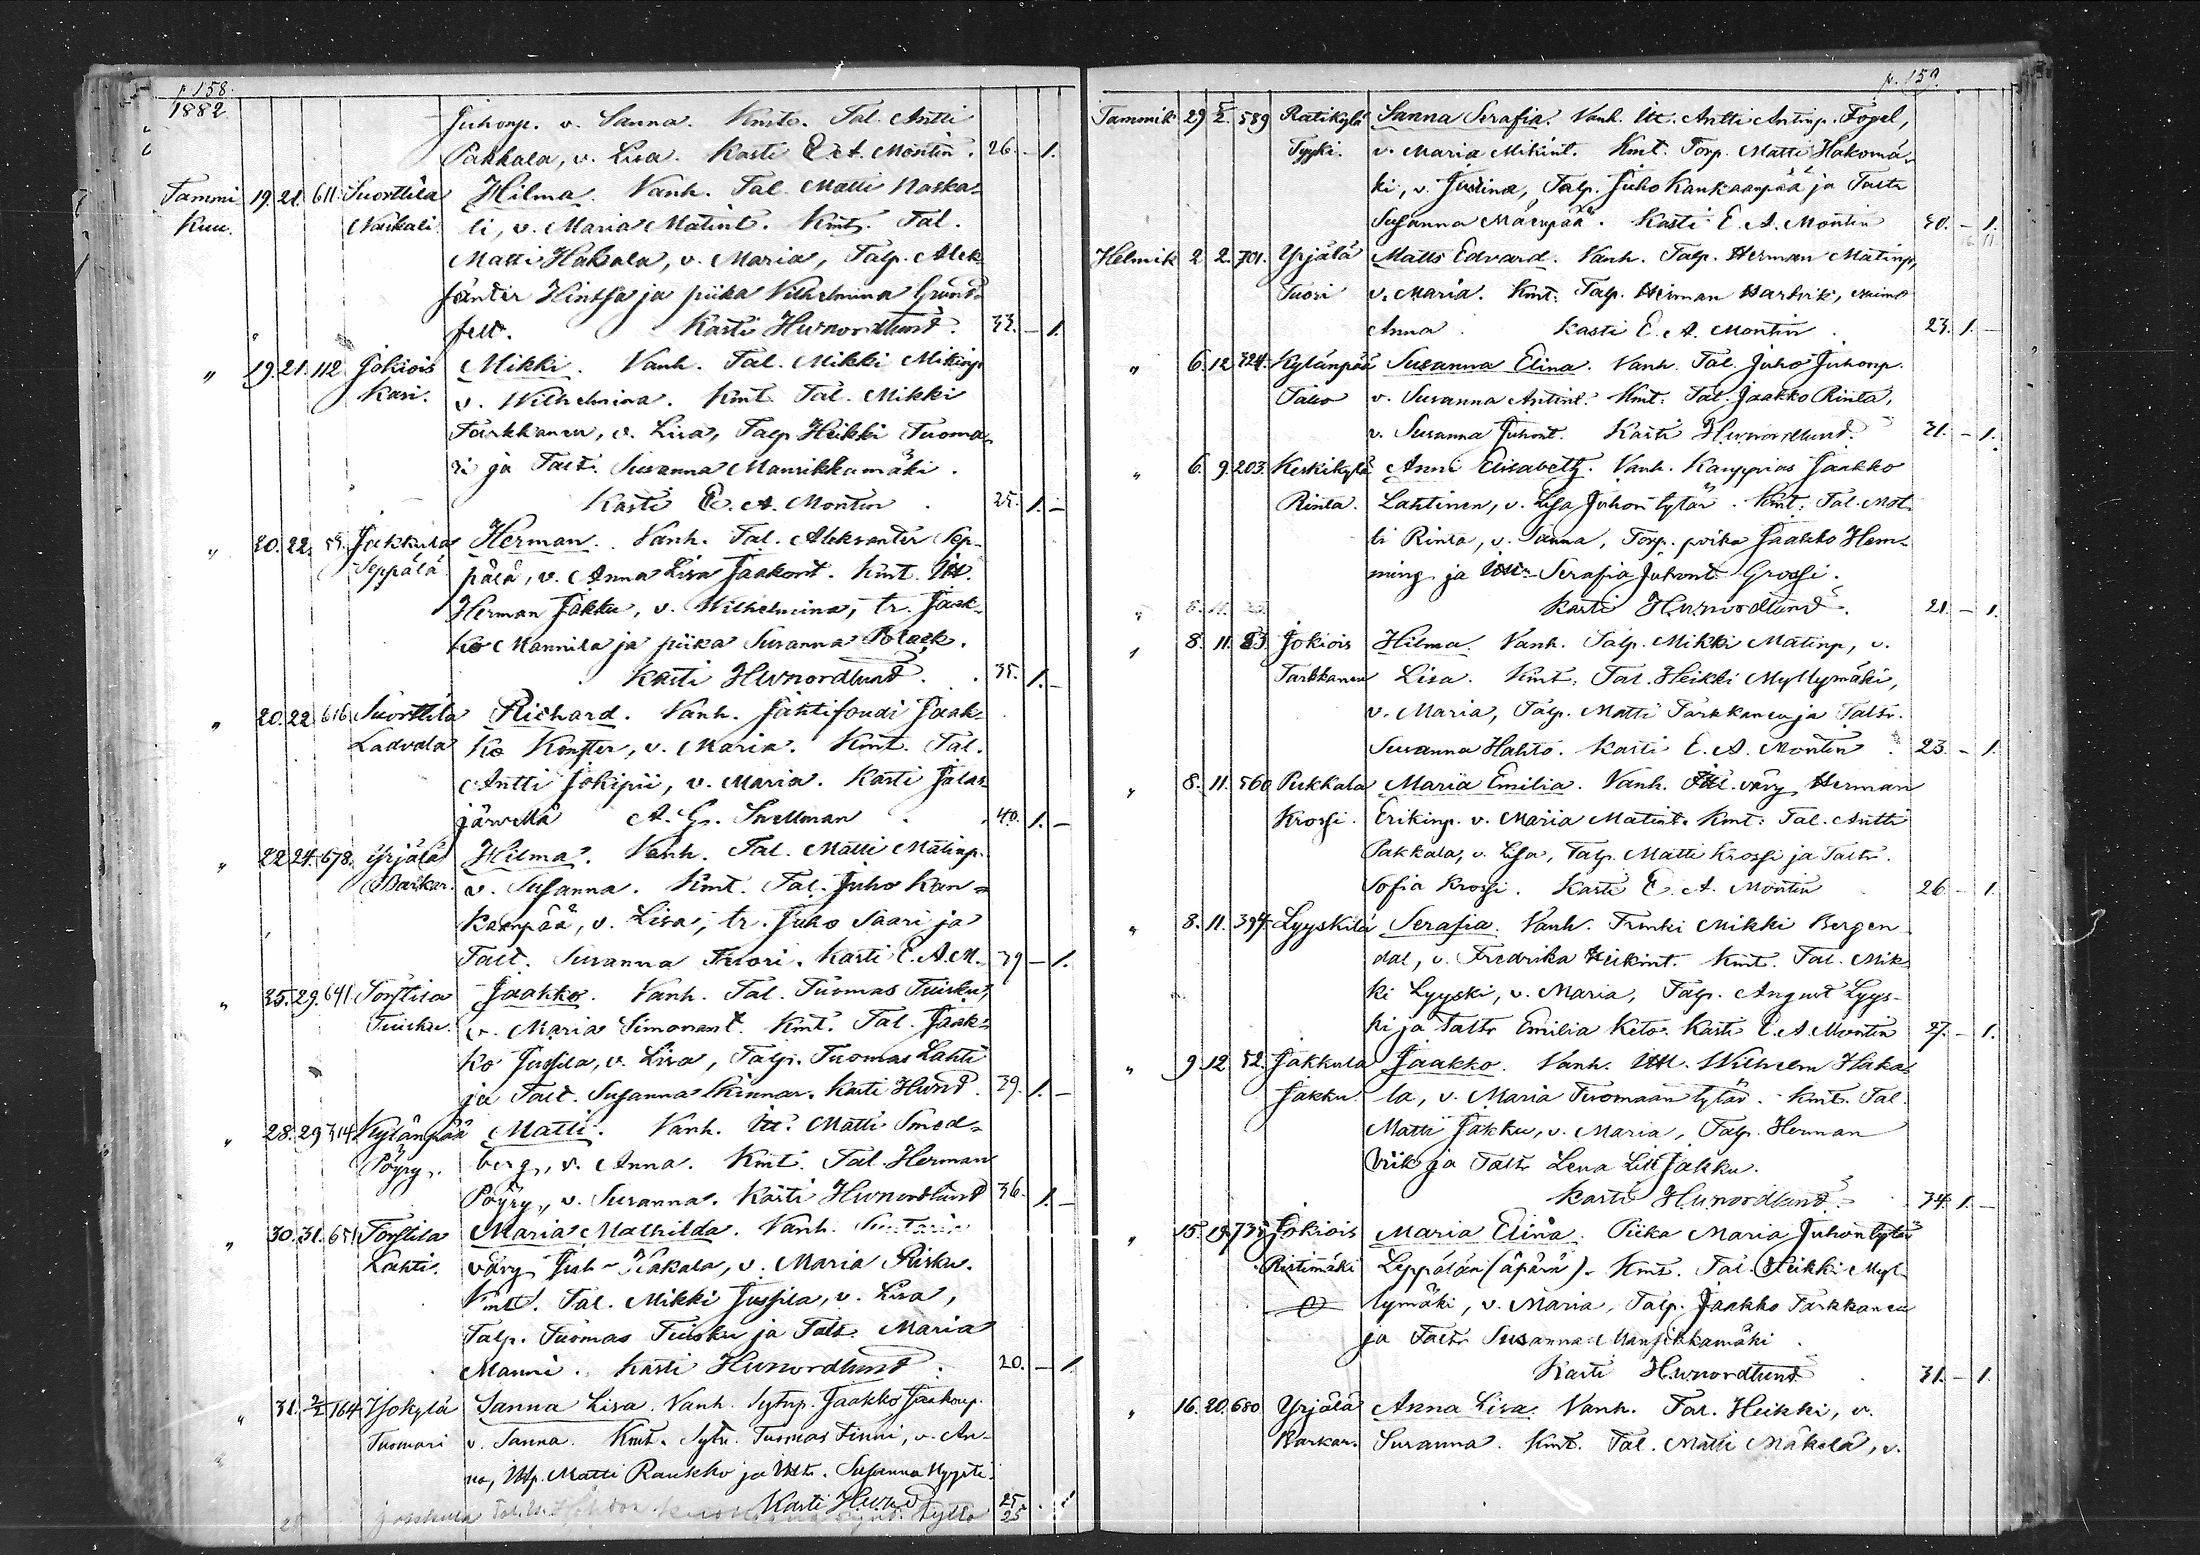 p 158.
1882
Juhonp. v. Sanna. Kmt. Tal. Antti
Pakkala, v. Lisa. Kasti E. A. Montin. 26. - 1.
Tammi 19. 21. 611. Suorttila Hilma. Vanh. Tal. Matti Naska-
Kuu. Naskali. li, v. Maria Matint. Kmt. Tal.
Matti Hakala, v. Maria, Talp. Alek-
santer Hintsa ja piika Vilhelmina Grund-
felt. Kasti H.v.nordlund. 33. - 1.
" 19. 21. 112 Jokiois Mikki. Vanh. Tal. Mikki Mikinp
Kari. v. Wilhelmina. Kmt. Tal. Mikki
Tarkkanen, v. Lisa, Talp. Heikki Tuoma-
ri ja Talt. Susanna Mansikkamäki.
Kasti E. A. Montin. 25. 1. -
" 20. 22. 59. Jakkula Herman. Vanh. Tal. Aleksanter Sep-
Seppälä pälä, v. Anna Lisa Jaakont. Kmt. Itt.
Herman Jakku, v. Wilhelmina, tr. Jaak-
ko Mannila ja piika Susanna Polack.
Kasti H.v.nordlund. 35. 1. -
" 20. 22 616 Suorttila Richard. Vanh. Jahtifoudi Jaak-
Ladvala ko Konster, v. Maria. Kmt. Tal.
Antti Jokipii, v. Maria. Kasti Jalas-
järvellä A. G. Snellman 40. 1. -
" 22 24. 678. Yrjälä Hilma. Vanh. Tal. Matti Matinp.
Barkar. v. Susanna. Kmt. Tal. Juho Kan-
kaanpää, v. Lisa, tr. Juho Saari ja
Talt. Susanna Tuori. Kasti E. A. M. 39 - 1.
" 25. 29. 641 Torstila Jaakko. Vanh. Tal. Tuomas Tuisku,
Tuisku. v. Maria Simonant. Kmt. Tal. Jaak-
ko Jussila, v. Lisa, Talp. Tuomas Lahti
ja Talt. Susanna Skinnar. Kasti H.v.nd. 39. 1. -
" 28. 29 314 Kylänpää Matti. Vanh. Itt. Matti Smed-
Pöyry. berg, v. Anna. Kmt. Tal. Herman
Pöyry, v. Susanna. Kasti H.v.nordlund 36. 1. -
" 30. 31. 651 Torstila Maria Mathilda. Vanh.
Lahti. väry Juh. Hakala, v. Maria Risku.
Kmt. Tal. Mikki Jussila, v. Lisa,
Talp. Tuomas Tuisku ja Talt. Maria
Manni. Kasti H.v.nordlund. 20. - 1.
" 31. 2/2 164 Isokylä Sanna Lisa. Vanh. Sytnp. Jaakko Jaakonp.
Tuomari v. Sanna. Kmt. Sytn. Tuomas Finni, v. An-
na, Ittp. Matti Rauskko ja Ittt. Susanna
Kasti H.v.nd. 25 . 1
25
p. 159.
Tammik 29 5/2. 589 Ratikylä Sanna Serafia. Vanh. Itt. Antti Antinp. Fogel,
Tyyki. v. Maria Mikint. Kmt. Torp. Matti Hakomä-
ki, v. Justina, Talp. Juho Kankaanpää ja Taltr
Susanna Mäenpää. Kasti E. A. Montin 30. - 1.
Helmik 2 2. 701. Yrjälä Matts Edvard. Vanh. Talp. Herman Matinp,
Tuori v. Maria. Kmt. Talp. Herman Hartvik, vaimo
Anna. Kasti E. A. Montin. 23. 1. -
" 6. 12 324. Kylänpää Susanna Elina. Vanh. Tal. Juho Juhonp.
Talso v. Susanna Antint. Kmt. Tal. Jaakko Rinta,
v. Susanna Juhont. Kasti H.v.nordlund. 31. - 1.
" 6. 9. 203. Keskikylä Anni Elisabeth. Vanh. Kauppias Jaakko
Rinta. Lahtinen, v. Lisa Juhontytär. Kmt. Tal. Mat-
ti Rinta, v. Sanna, Torp. poika Jaakko Hem-
ming ja Ittt. Serafia Juhont. Grossi.
Kasti H.v.nordlund. 21. - 1.
" 8. 11. 83. Jokiois Hilma. Vanh. Talp. Mikki Matinp, v.
Tarkkanen Lisa. Kmt. Tal. Heikki Myllymäki,
v. Maria, Talp. Matti Tarkkanen ja Taltr.
Susanna Hahto. Kasti E. A. Montin 23 - 1.
" 8. 11. 560 Pukkala Maria Emilia. Vanh. Itt. väry Herman
Krossi. Erikinp. v. Maria Matint. Kmt. Tal. Antti
Pakkala, v. Lisa, Talp. Matti Krossi ja Taltr.
Sofia Krossi. Kasti E. A. Montin 26 - 1.
" 8. 11. 394. Lyyskilä Serafia. Vanh. Trenki Mikki Bergen-
dal, v. Fredrika Heikint. Kmt. Tal. Mik-
ki Lyyski, v. Maria, Talp. August Lyys-
ki ja Taltr Emilia Keto. Kasti E. A. Montin 27. - 1.
" 9 12 52. Jakkula Jaakko. Vanh. Ittl. Wilhelm Haka-
Jakku. la, v. Maria Tuomaan tytär. Kmt. Tal.
Matti Jakku, v. Maria, Talp. Herman
Viik ja Taltr Lena Lisa Jakku.
Kasti H.v.nordlund. 34. 1. -
" 15. 19. 735 Jokiois Maria Elina. Piika Maria Juhontytär
Ristimäki Leppälän (äpärä). Kmt. Tal. Heikki Myl-
lymäki, v. Maria, Talp. Jaakko Tarkkanen
ja Taltr Susanna Mansikkamäki.
Kasti H.v.nordlund 31. - 1.
" 16. 20. 680 Yrjälä Anna Lisa. Vanh. Tal. Heikki, v.
Barkar. Susanna. Kmt. Tal. Matti Mäkelä, v.